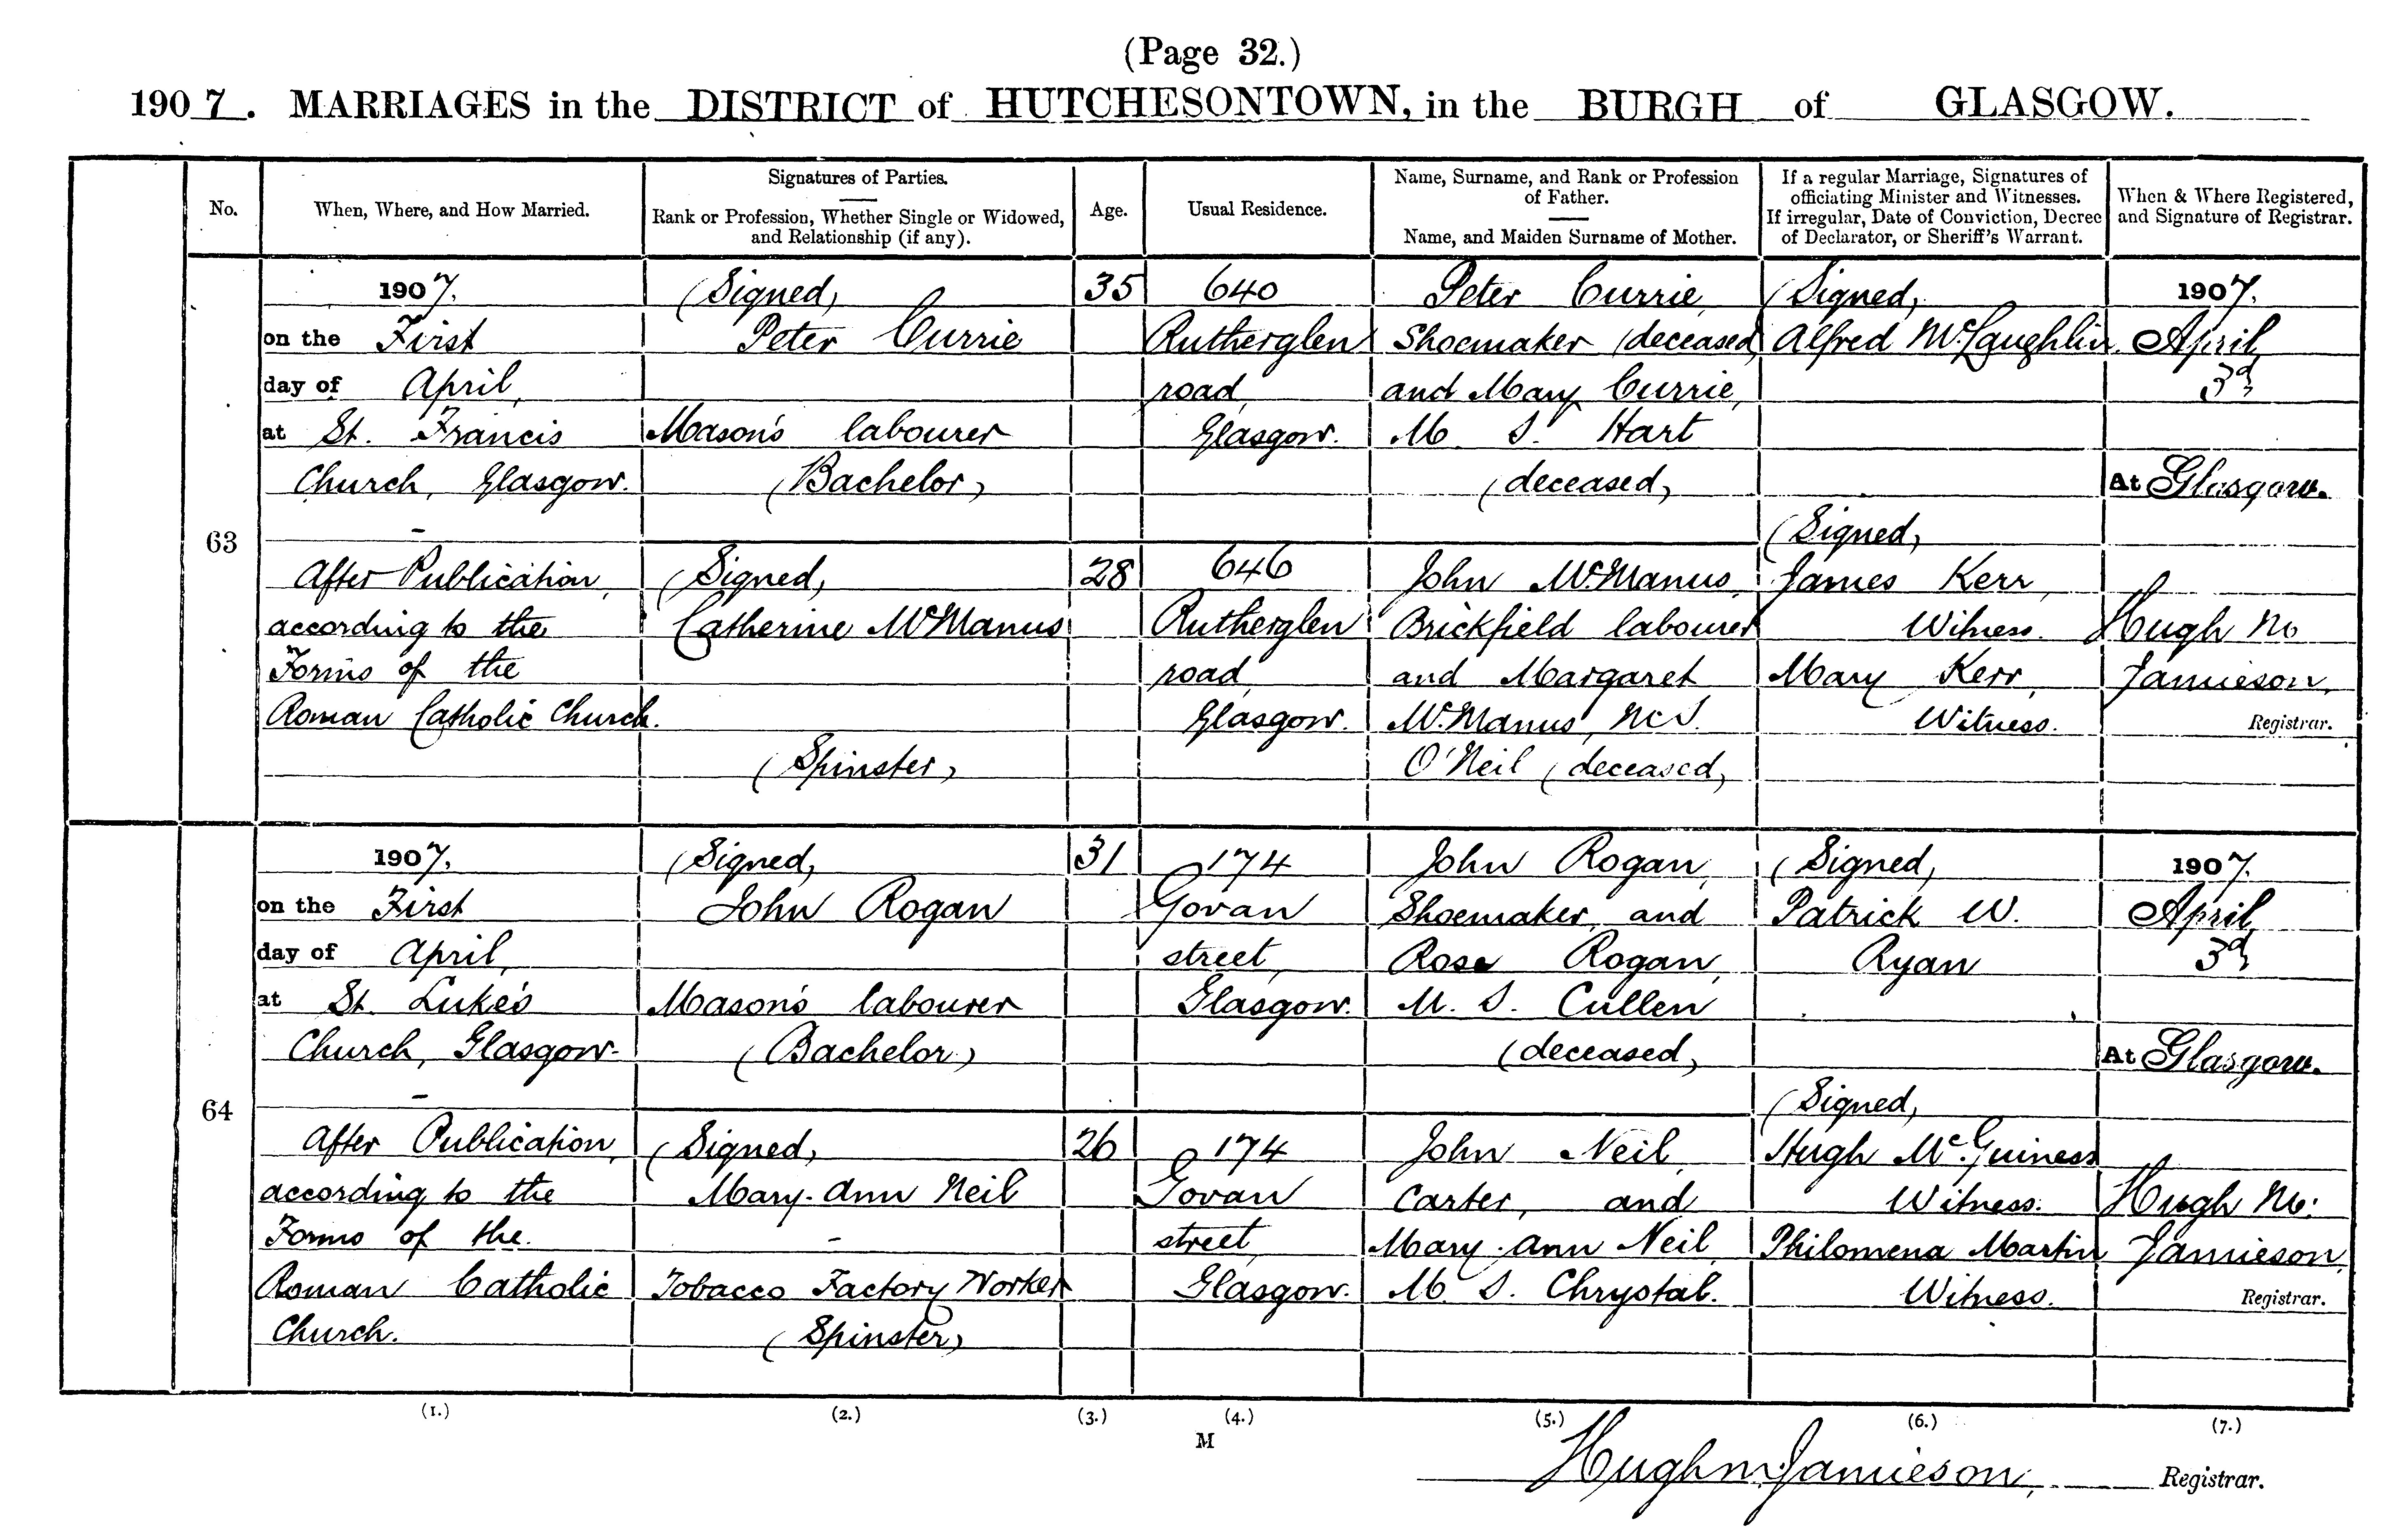 (Page 32.)
1907. MARRIAGES in the DISTRICT of HUTCHESONTOWN, in the BURGH of GLASGOW.
No.
When, Where, and How Married.
Signatures of Parties.
Rank or Profession, Whether Single or Widowed,
and Relationship (if any).
Age.
Usual Residence.
Name, Surname, and Rank or Profession
of Father.
Name, and Maiden Surname of Mother.
If a regular Marriage, Signatures of
officiating Minister and Witnesses.
If irregular, Date of Conviction, Decree
of Declarator, or Sheriff's Warrant.
When & Where Registered,
and Signature of Registrar.
63
1907.
on the First
day of April,
at St. Francis
Church, Glasgow.
-
After Publication,
according to the
Forms of the
Roman Catholic Church.
(Signed)
Peter Currie
Mason's labourer
(Bachelor)
(Signed)
Catherine McManus
(Spinster)
35
28
640
Rutherglen
road,
Glasgow.
646
Rutherglen
road,
Glasgow.
Peter Currie,
Shoemaker (deceased)
and Mary Currie,
M. S. Hart
(deceased)
John McManus,
Brickfield labourer
and Margaret
McManus, M.S.
O'Neil (deceased)
(Signed)
Alfred McLaughlin.
(Signed)
James Kerr,
Witness.
Mary Kerr,
Witness.
1907.
April,
3d,
At Glasgow.
Hugh M.
Jamieson,
Registrar.
64
1907.
on the First
day of April,
at St. Luke's
Church, Glasgow.
-
After Publication,
according to the
Forms of the
Roman Catholic
Church.
(Signed)
John Rogan
Mason's labourer
(Bachelor)
(Signed)
Mary-Ann Neil
-
Tobacco Factory Worker
(Spinster)
31
26
174
Govan
street,
Glasgow.
174
Govan
street,
Glasgow.
John Rogan,
Shoemaker, and
Rose Rogan,
M. S. Cullen
(deceased)
John Neil,
Carter, and
Mary-Ann Neil,
M. S. Chrystal.
(Signed)
Patrick W.
Ryan
(Signed)
Hugh McGuiness
Witness.
Philomena Martin
Witness.
1907.
April,
3d,
At Glasgow.
Hugh M.
Jamieson,
Registrar.
(1.) (2.) (3.) (4.) (5.) (6.) (7.)
M
Hugh M. Jamieson, Registrar.